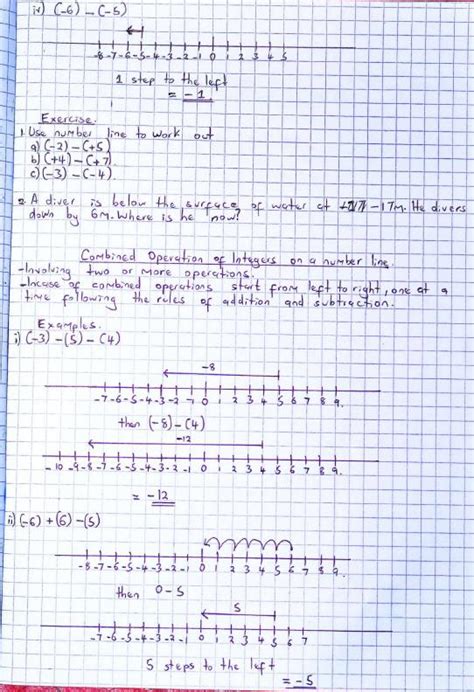 iv) (-6) - (-5)
-8 -7 -6 -5 -4 -3 -2 -1 0 1 2 3 4 5
1 step to the left
= -1
Exercise.
1. Use number line to work out
a) (-2) - (+5)
b) (+4) - (+7)
c) (-3) - (-4).
2. A diver is below the surface of water at -17M. He divers
down by 6M. Where is he now?
Combined Operation of Integers on a number line.
-Involving two or more operations.
-Incase of combined operations start from left to right, one at a
time following the rules of addition and subtraction.
Examples.
i) (-3) - (5) - (4)
-8
-7 -6 -5 -4 -3 -2 -1 0 1 2 3 4 5 6 7 8 9.
then (-8) - (4)
-12
-10 -9 -8 -7 -6 -5 -4 -3 -2 -1 0 1 2 3 4 5 6 7 8 9.
= -12
ii) (-6) + (6) - (5)
-8 -7 -6 -5 -4 -3 -2 -1 0 1 2 3 4 5 6 7 8 9.
then 0 - 5
5
-7 -6 -5 -4 -3 -2 -1 0 1 2 3 4 5 6 7
5 steps to the left
= -5